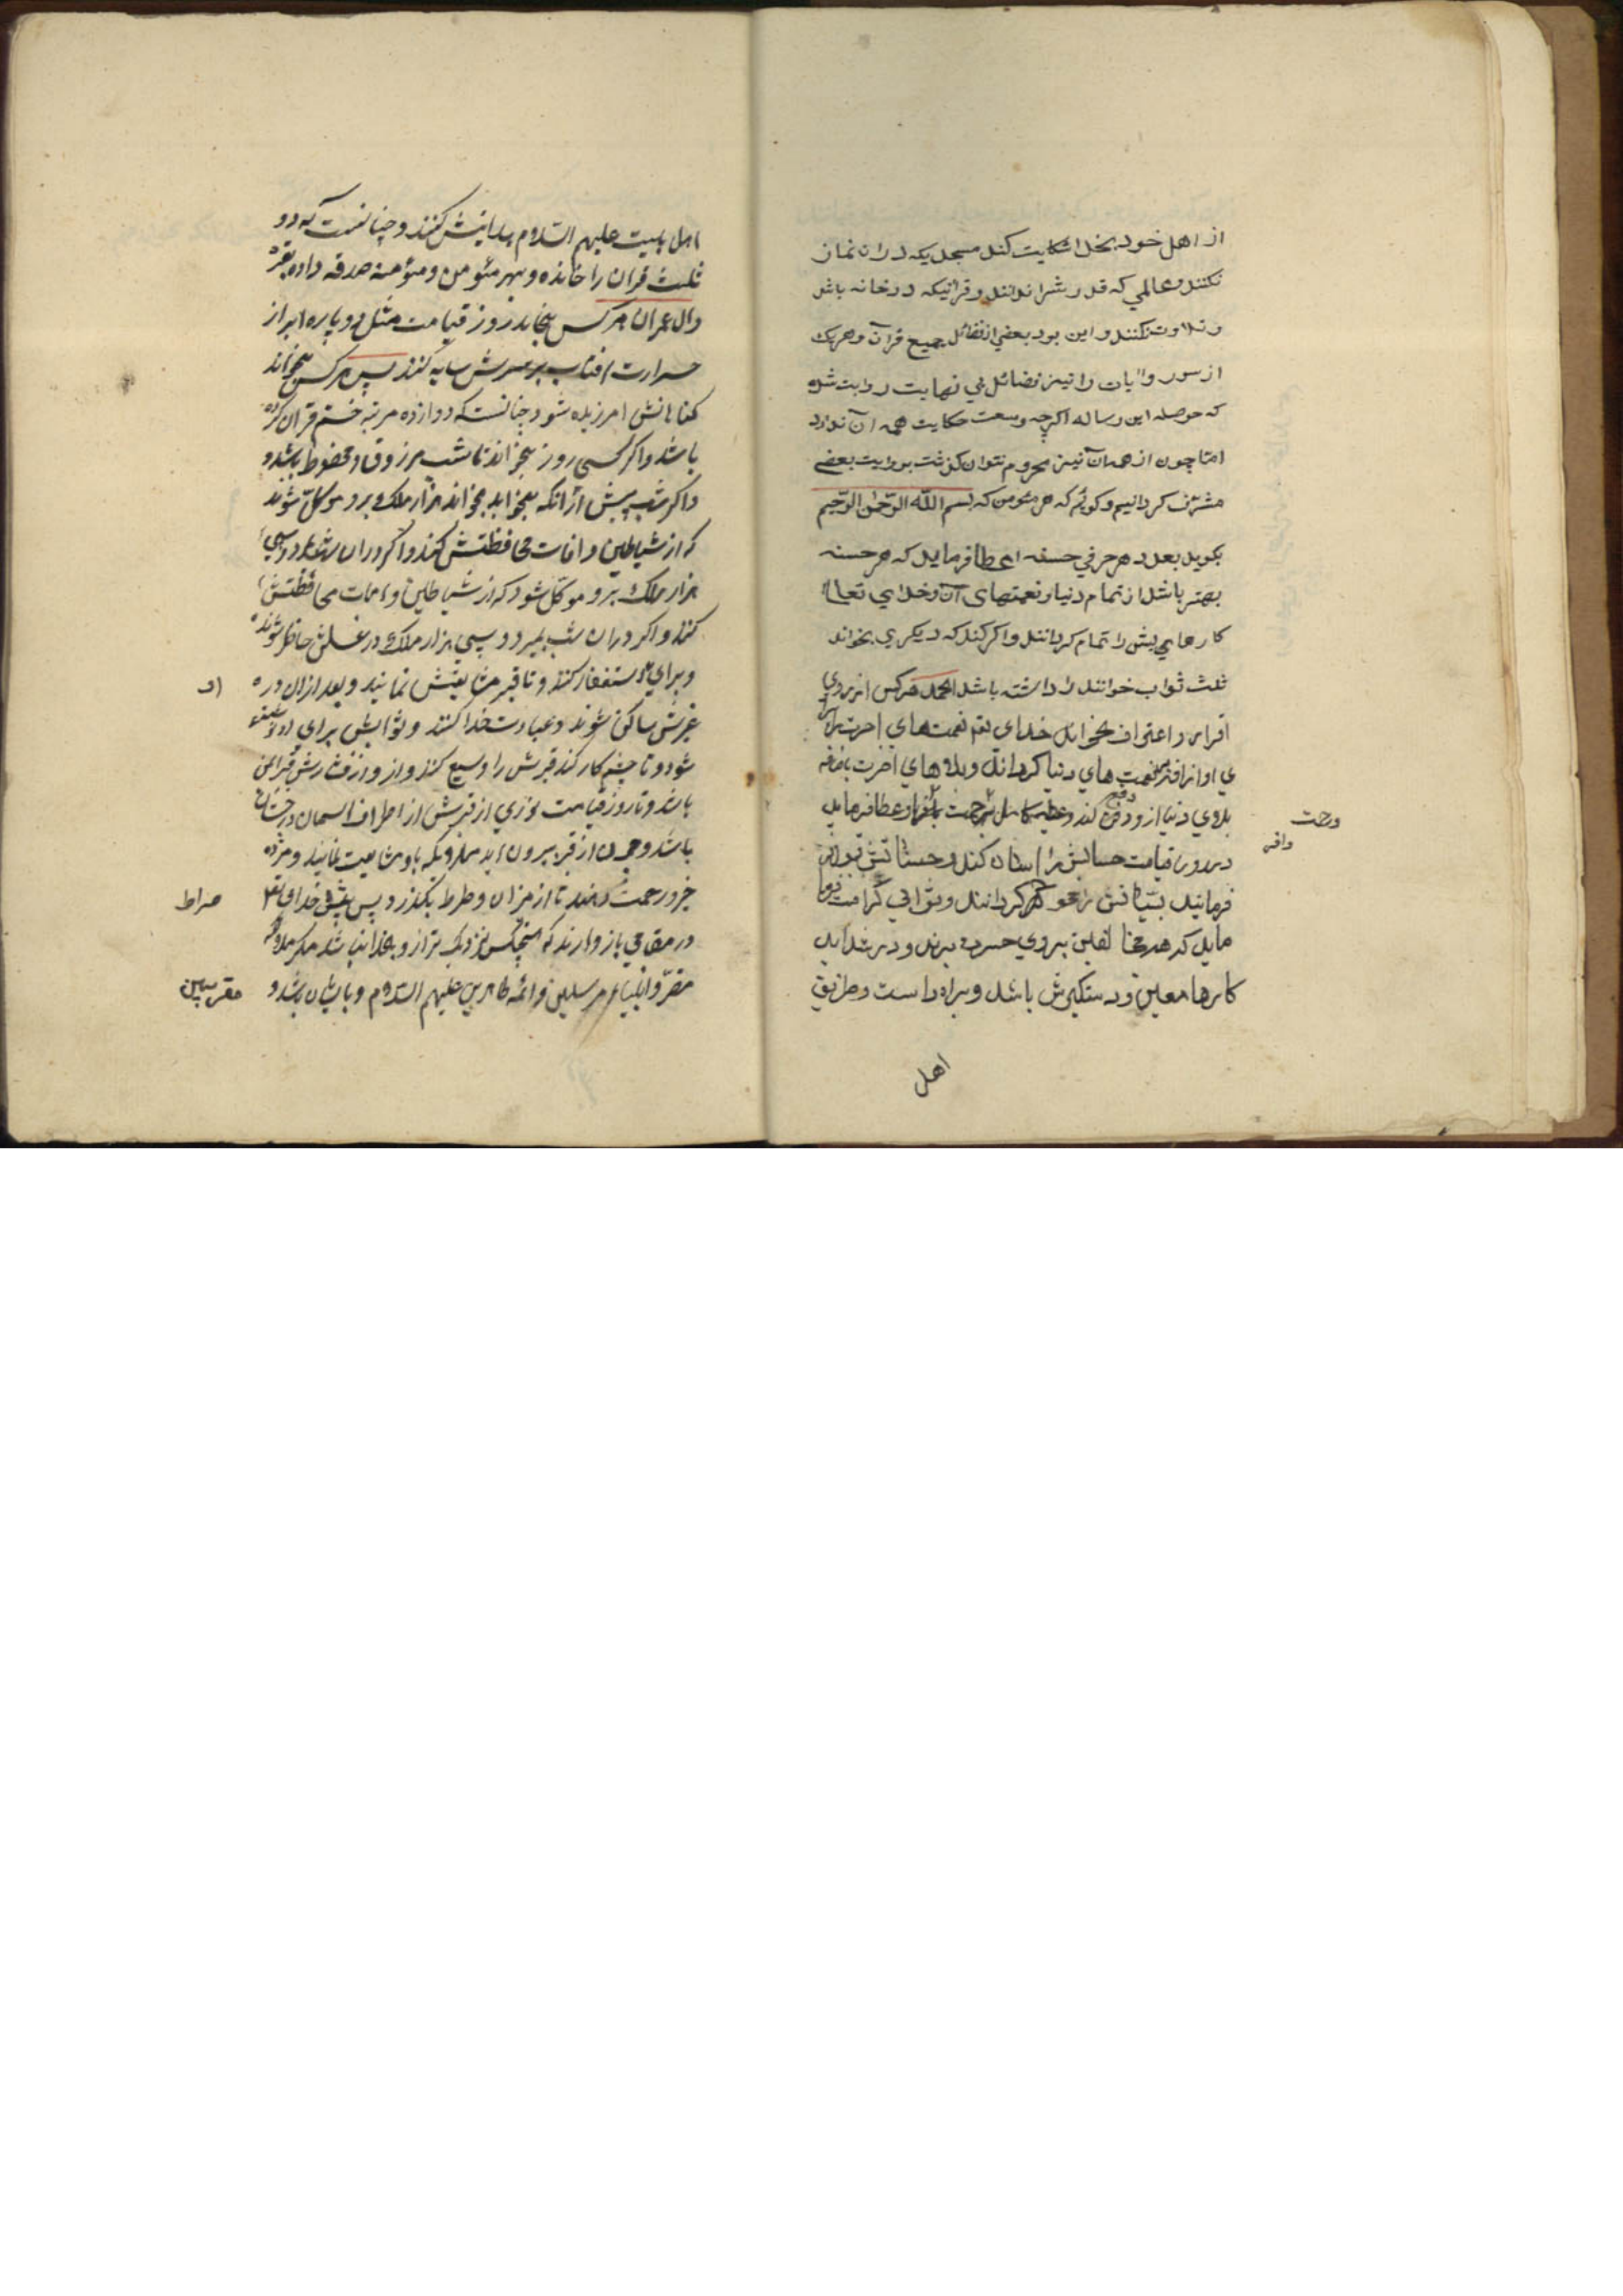 از اهل خود بخدا شکایت کند مسجدیکه دران نماز
نکنند وعالمی که قدرشرا ندانند وقرآنیکه درخانه باشد
وتلاوت نکنند واین بود بعضی از فضائل جمیع قرآن وهریک
از سور وآیات را نیز فضائل بی نهایت روایت شده
که حوصله این رساله اکرچه وسعت حکایت همه آن ندارد
امّا چون از همان نیز محروم نتوان کذشت بروایت بعضی
مشرّف کردانیم وکوئیم که هر مؤمن که بسم اللّه الرّحمن الرّحیم
بکوید بعدد هر حرفی حسنه اعطا فرماید که هر حسنه
بهتر باشد از تمام دنیا ونعمتهای آن وخدای تعالی
کارهایش را تمام کردانند واکر کند که دیکری بخواند
ثلث ثواب خوانند را داشته باشد الحمد هرکس از روی
اقرار واعتراف بخواند خدای نعمت های اخرت برای
او از نعمت های دنیا کرداند وبلاهای اخرت باضافه
بلای دنیا از او دفع کند و رحمت عطا فرماید
ودر روز قیامت حسابش را اسان کند وحسناتش
فرمانید را محو کردانند وثوابی کرامت
ماید که همه بروی حسرت برند ودر شداید
کارها معین ودستکیرش باشد وبراه راست وطریق
اهل
ورحمت
وافر
اهل بیت علیهم السّلام هدایتش کنند وچنانست که دو
ثلث قرآن را خوانده وبهر مؤمن ومؤمنه صدقه داده بقره
وال عمران هرکس بخواند روز قیامت مثل دو پاره ابر از
حرارت افتاب بر سرش سایه کنند یس هرکس بخواند
کناهانش امرزیده شود وچنانست که دوازده مرتبه ختم قرآن کرده
باشد واکر کسی روز بخواند تا شب مرزوق ومحفوظ باشد و
واکر شب پیش ازانکه بخوابد بخواند هزار ملک برو موکّل شوند
که از شیاطین وافات محافظتش کنند واکر دران
هزار ملک برو موکّل شود که از شیاطین وافات محافظتش
کنند واکر دران شب بمیرد دو سی هزار ملک در غسلش حاضر شوند
وبرای استغفار کنند وتا قبر مشایعتش نمایند وبعد ازان در
قبرش ساکن شوند وعبادت خدا کنند وثوابش برای او
شود وتا چشم کار کند قبرش را وسیع کنند واز فشارش قبر ایمن
باشد وتا روز قیامت نوری از قبرش از اطراف اسمان درخشان
باشد وچون از قبر بیرون اید ملائکه باو مشایعت نمایند ومژده
خیر ورحمت دهند تا از میزان وصراط بکذرد پس پیش خدای
در مقامی باز دارند که هیچکس نزدیک تر ازو بخدا نباشد مکر ملائکه
مقرّ وانبیاء مرسلین وائمه طاهرین علیهم السّلام وبایشان باشد و
او
صراط
مقربین